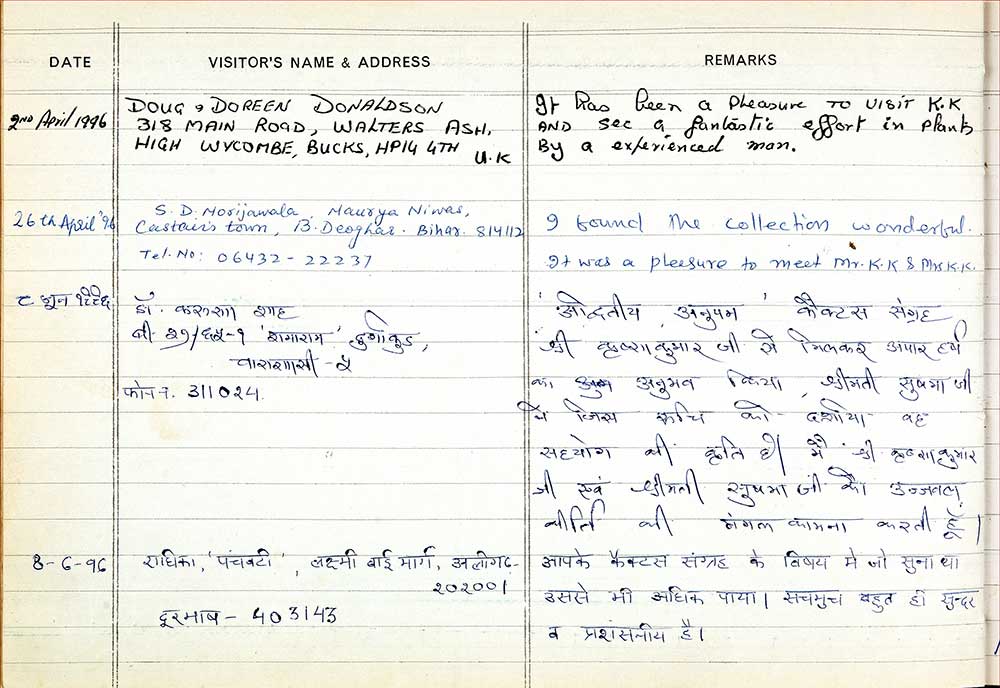 DATE VISITOR'S NAME & ADDRESS REMARKS
2ND April 1996
DOUG & DOREEN DONALDSON
318 MAIN ROAD, WALTERS ASH,
HIGH WYCOMBE, BUCKS, HP14 4TH
U.K
It has been a pleasure TO VISIT K.K
AND see a fantastic effort in plants
By a experienced man.
26th April '96
S. D. Morijawala, Maurya Niwas,
Castair's town, B. Deoghar. Bihar. 814112
Tel. No: 06432-22237
I found the collection wonderful.
It was a pleasure to meet Mr. K.K & Mrs K.K.
८ जून १९९६
डॉ. करुणा शाह
बी २७/६५-१ 'रामाराम' दुर्गाकुंड,
वाराणसी-५
फोन नं. 311024.
'अद्वितीय, अनुपम' कैक्टस संग्रह
श्री कृष्णकुमार जी से मिलकर अपार हर्ष
का अनुभव किया श्रीमती सुषमा जी
ने जिस रुचि को दर्शाया वह
सहयोग की कृति है। मैं श्री कृष्णकुमार
जी एवं श्रीमती सुषमा जी की उज्जवल
कीर्ति की मंगल कामना करती हूँ।
8-6-96
राधिका, 'पंचवटी', लक्ष्मी बाई मार्ग, अलीगढ़-
202001
दूरभाष - 403143
आपके कैक्टस संग्रह के विषय मे जो सुना था
उससे भी अधिक पाया। सचमुच बहुत ही सुन्दर
व प्रशंसनीय है।